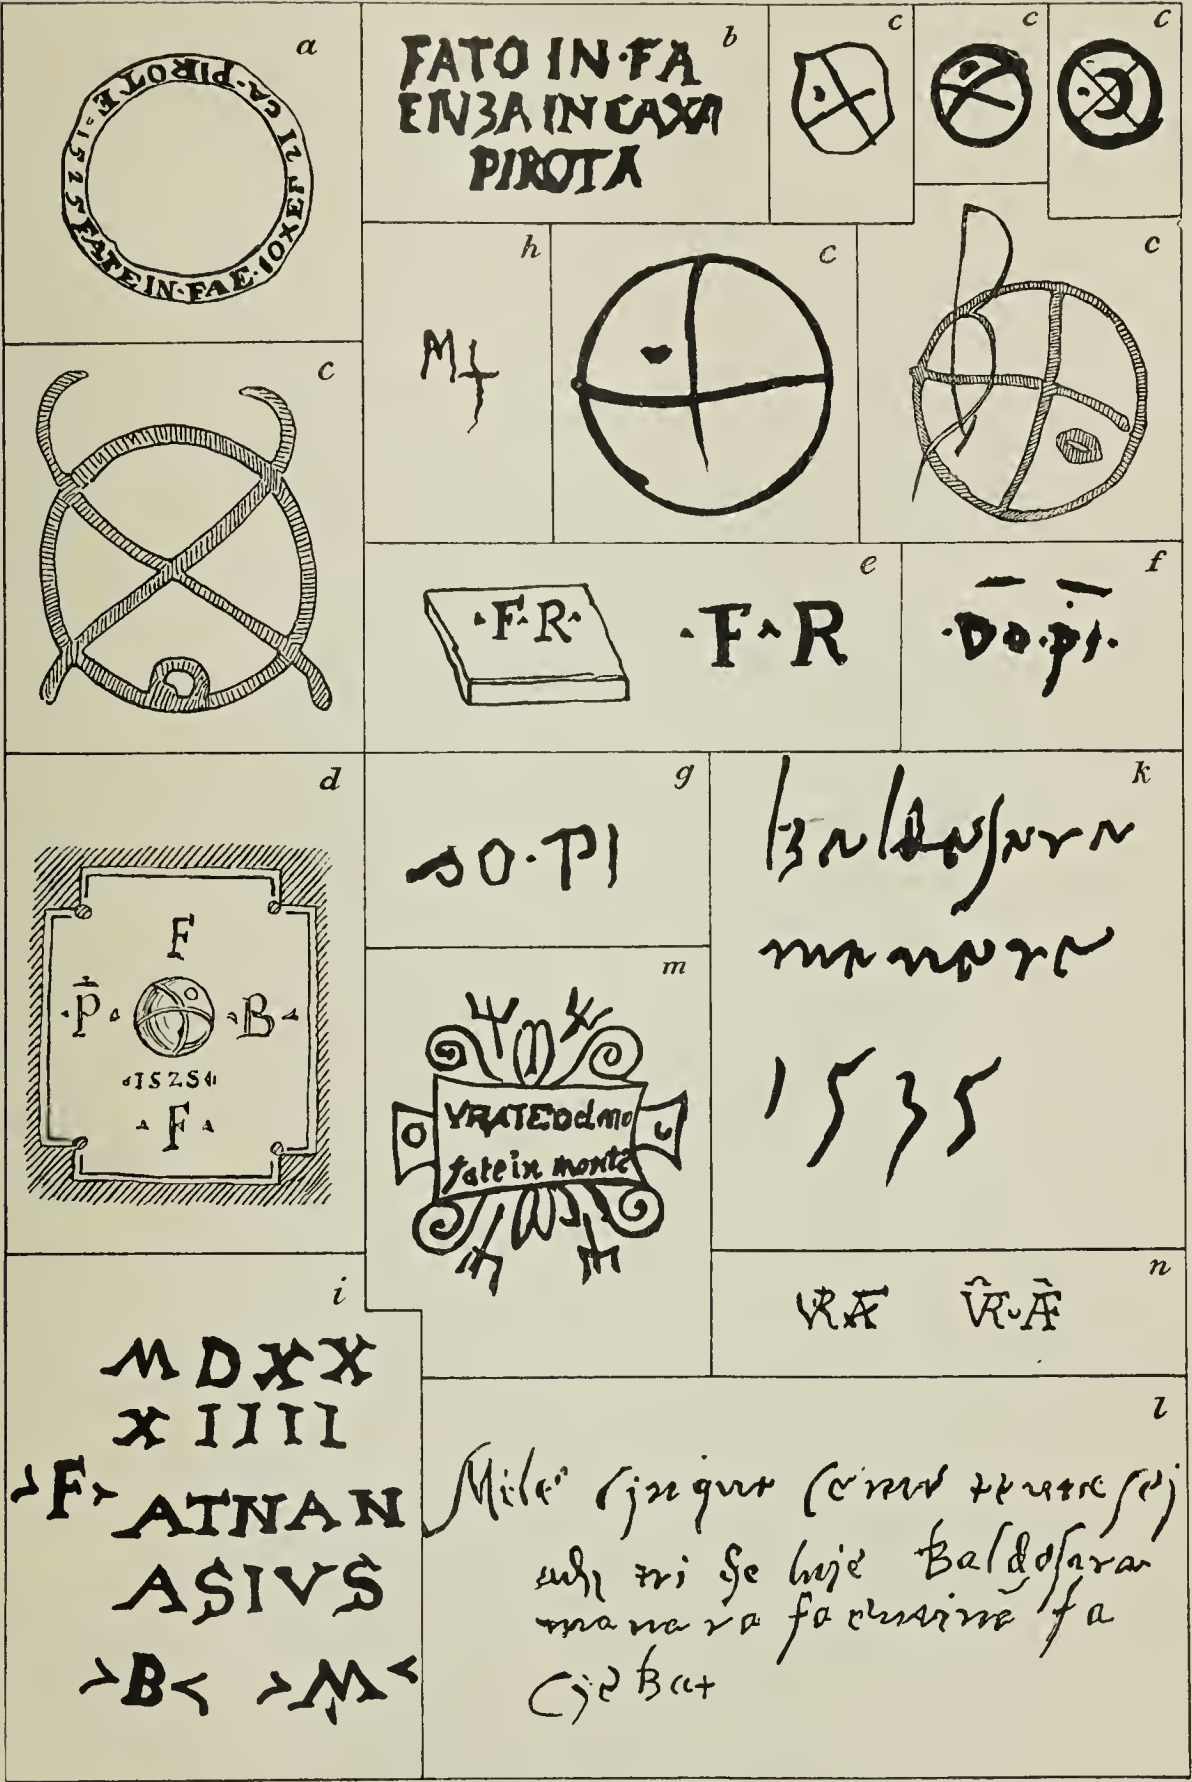 a
FATE IN·FAE·IOXEF IZ CA-PIROTE=1525
b
FATO IN·FA
ENZA IN CAXA
PIROTA
c
c
c
h
M
c
c
c
e
·F·R·
·F·R
f
·Do·pi·
d
F
·P· ·B·
1525
·F·
g
DO·PI
k
baldasara
manara
1535
m
VRATEDdelmo
fatein monte
n
VRAF VR·AF
i
MDXX
XIIII
F ATNAN
ASIVS
B M
l
Mile cinque cento trenta sej
adj tri de luje Baldasara
manara faentino fa